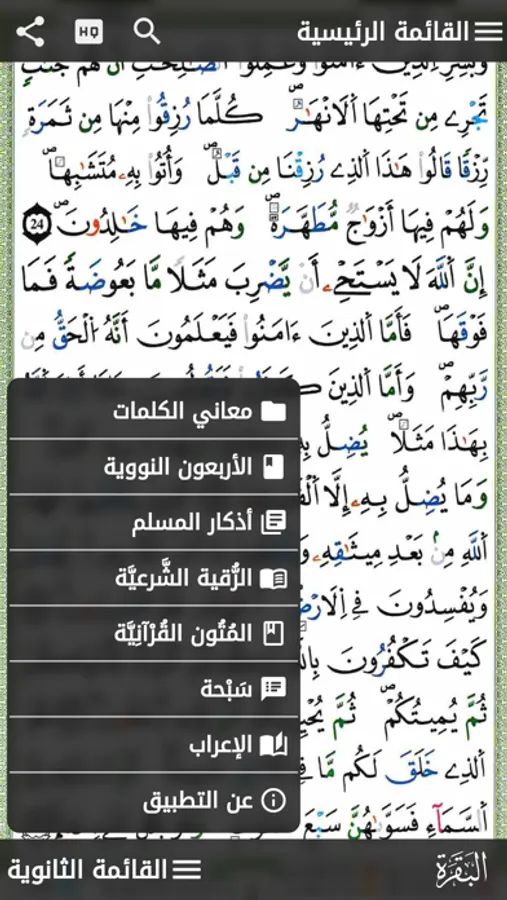 القائمة الرئيسية
HQ
تَجْرِے مِن تَحْتِهَا اَلَانْهَٰرُ كُلَّمَا رُزِقُواْ مِنْهَا مِن ثَمَرَةٖ
رِّزْقٗا قَالُواْ هَٰذَا اَلذِے رُزِقْنَا مِن قَبْلُ وَأُتُواْ بِهِۦ مُتَشَٰبِهٗا
وَلَهُمْ فِيهَا أَزْوَٰجٞ مُّطَهَّرَةٞ وَهُمْ فِيهَا خَٰلِدُونَ 24
إِنَّ اَللَّهَ لَا يَسْتَحْيِۦ أَنْ يَّضْرِبَ مَثَلٗا مَّا بَعُوضَةٗ فَمَا
فَوْقَهَا فَأَمَّا اَلذِينَ ءَامَنُواْ فَيَعْلَمُونَ أَنَّهُ اُلْحَقُّ مِن
رَّبِّهِمْ وَأَمَّا اَلذِينَ
بِهَٰذَا مَثَلٗا يُضِلُّ
وَمَا يُضِلُّ بِهِۦ إِلَّا
اَللَّهِ مِنۢ بَعْدِ مِيثَٰقِهِۦ
وَيُفْسِدُونَ فِے اِلَارْضِ
كَيْفَ تَكْفُرُونَ
ثُمَّ يُمِيتُكُمْ ثُمَّ
اَلذِے خَلَقَ لَكُم مَّا
اَلسَّمَآءِ فَسَوَّىٰهُنَّ سَبْعَ
معاني الكلمات
الأربعون النووية
أذكار المسلم
الرُّقية الشَّرعيَّة
المُتُون القُرْآنِيَّة
سَبْحة
الإعراب
عن التطبيق
القائمة الثانوية
البَقَرَة